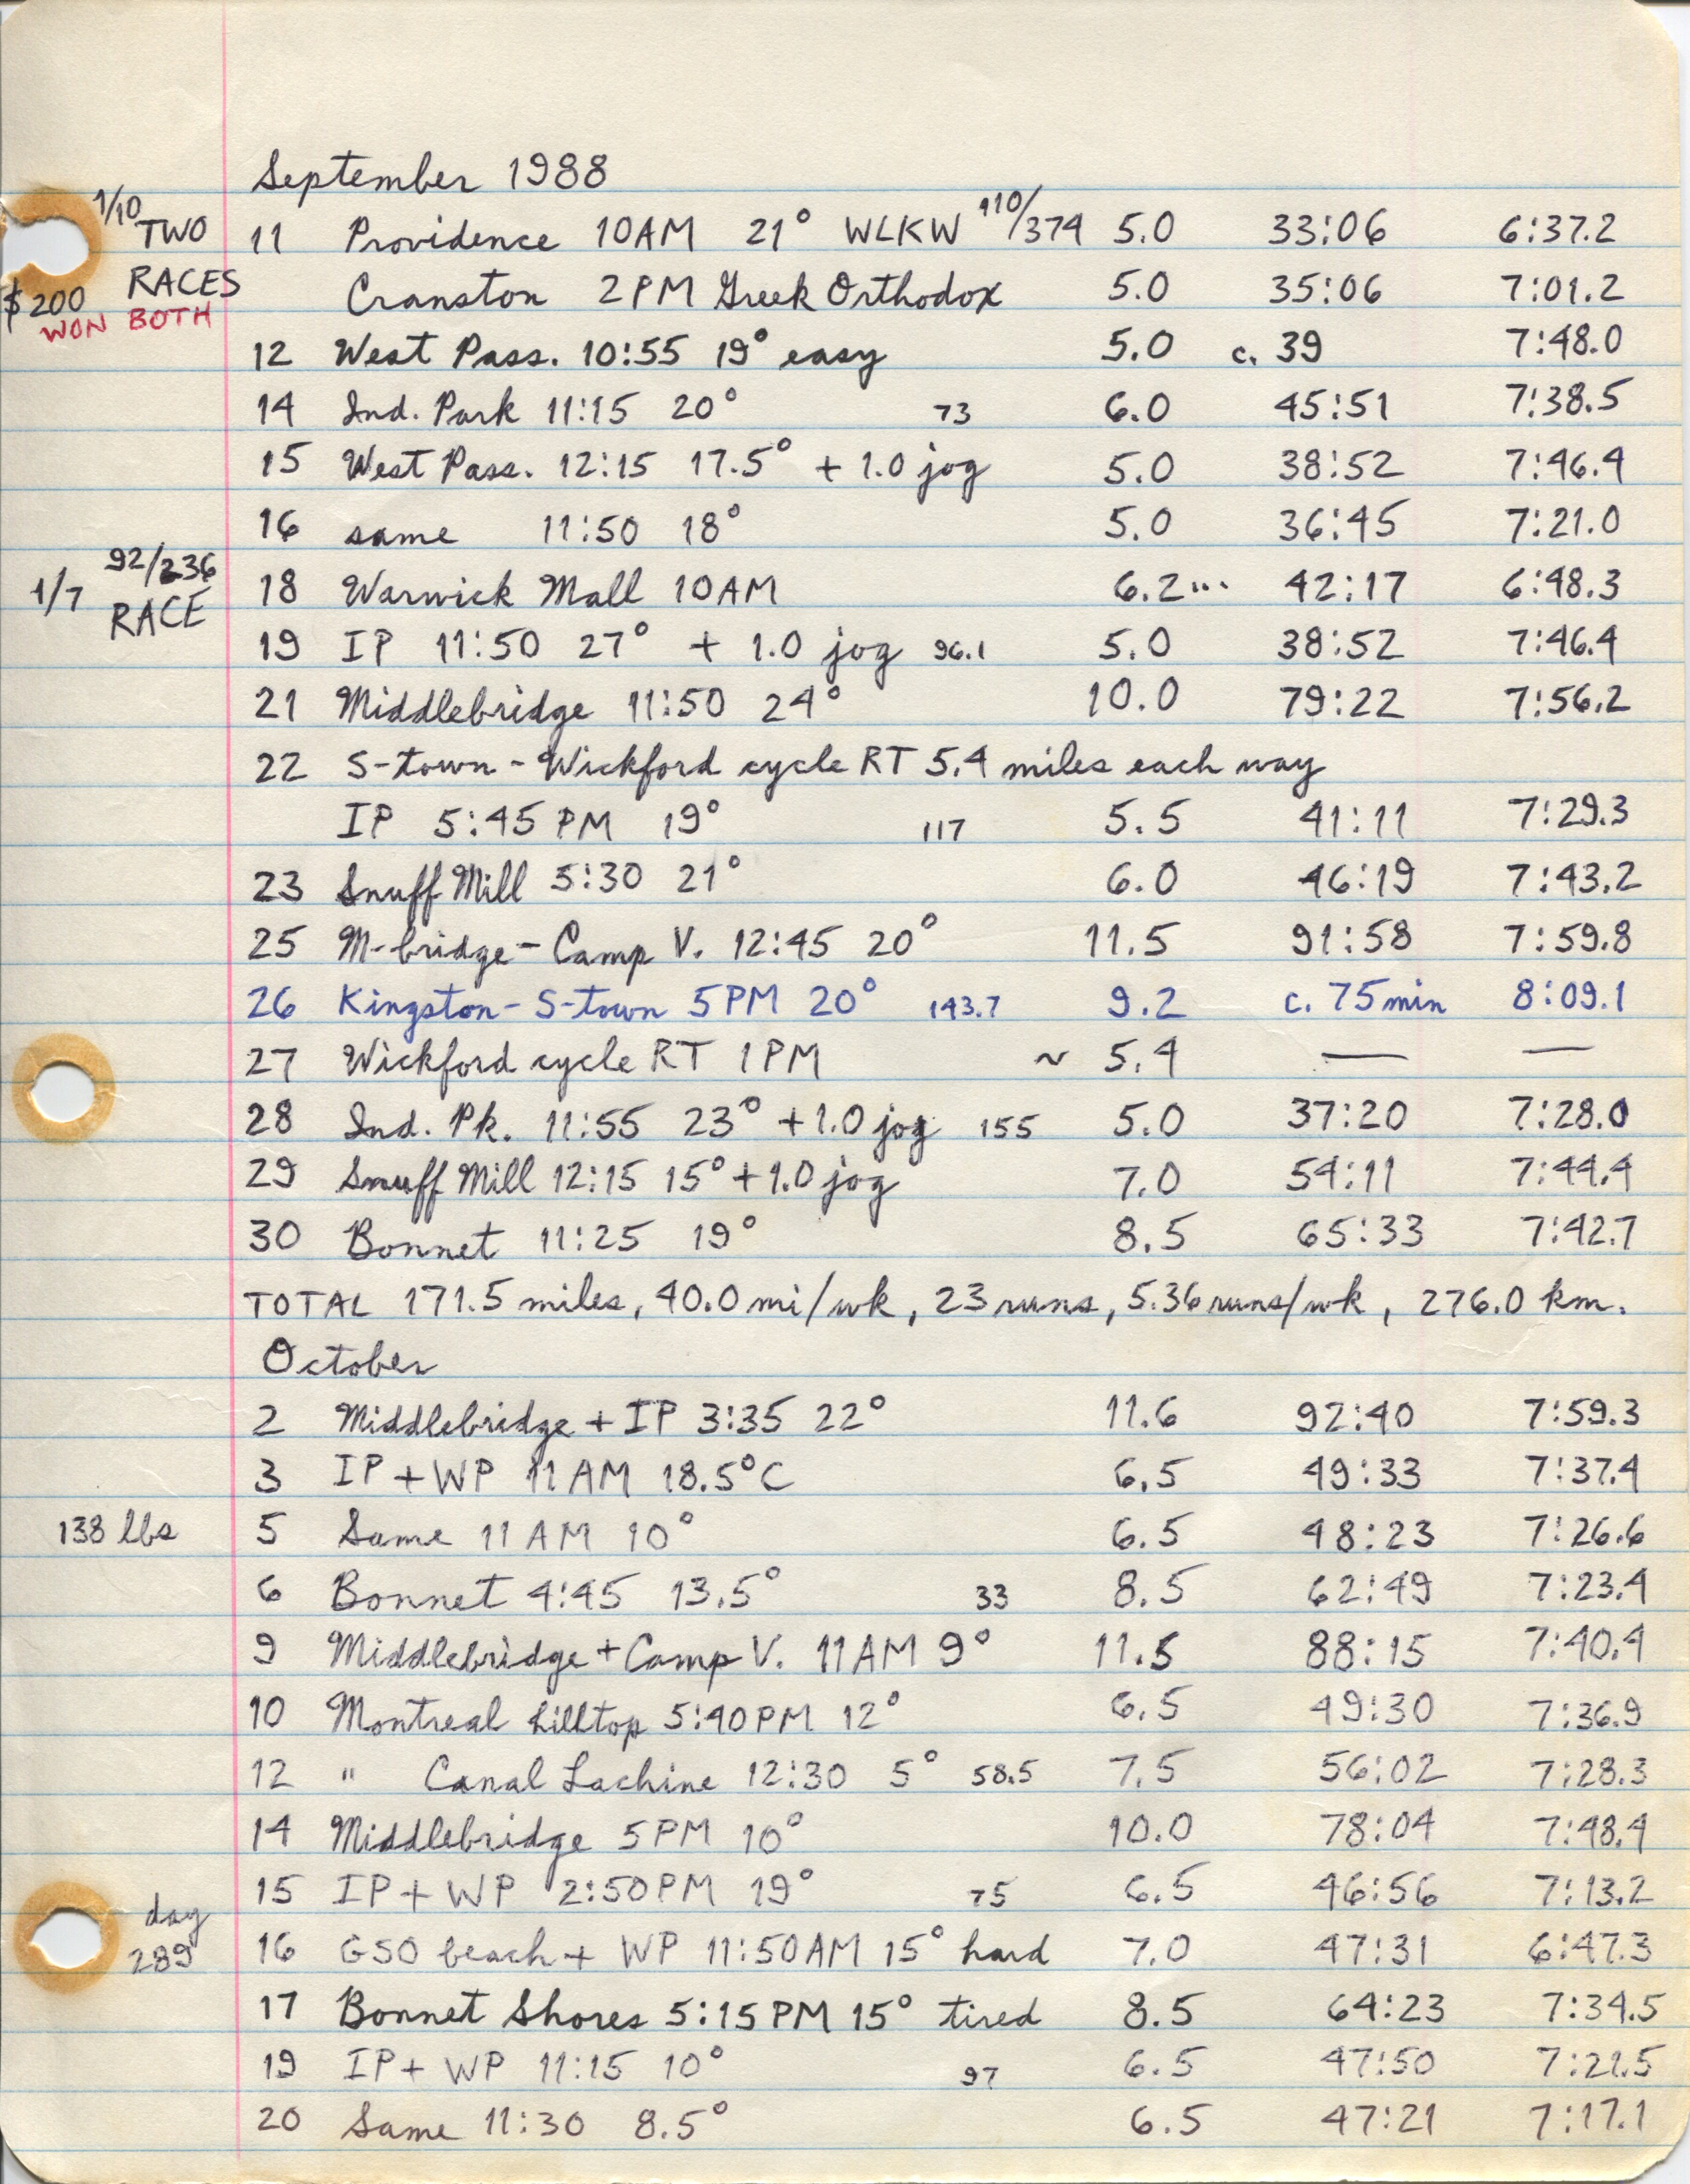 September 1988
1/10 TWO 11 Providence 10AM 21° WLKW 110/374 5.0 33:06 6:37.2
$200 RACES Cranston 2PM Greek Orthodox 5.0 35:06 7:01.2
WON BOTH
12 West Pass. 10:55 19° easy 5.0 c. 39 7:48.0
14 Ind. Park 11:15 20° 73 6.0 45:51 7:38.5
15 West Pass. 12:15 17.5° + 1.0 jog 5.0 38:52 7:46.4
16 same 11:50 18° 5.0 36:45 7:21.0
92/236
1/7 RACE 18 Warwick Mall 10AM 6.2... 42:17 6:48.3
19 IP 11:50 27° + 1.0 jog 96.1 5.0 38:52 7:46.4
21 Middlebridge 11:50 24° 10.0 79:22 7:56.2
22 S-town - Wickford cycle RT 5.4 miles each way
IP 5:45 PM 19° 117 5.5 41:11 7:29.3
23 Snuff Mill 5:30 21° 6.0 46:19 7:43.2
25 M-bridge - Camp V. 12:45 20° 11.5 91:58 7:59.8
26 Kingston - S-town 5PM 20° 143.7 9.2 c. 75 min 8:09.1
27 Wickford cycle RT 1PM ~ 5.4 — —
28 Ind. Pk. 11:55 23° + 1.0 jog 155 5.0 37:20 7:28.0
29 Snuff Mill 12:15 15° + 1.0 jog 7.0 54:11 7:44.4
30 Bonnet 11:25 19° 8.5 65:33 7:42.7
TOTAL 171.5 miles, 40.0 mi/wk, 23 runs, 5.36 runs/wk, 276.0 km.
October
2 Middlebridge + IP 3:35 22° 11.6 92:40 7:59.3
3 IP + WP 11 AM 18.5°C 6.5 49:33 7:37.4
138 lbs 5 Same 11 AM 10° 6.5 48:23 7:26.6
6 Bonnet 4:45 13.5° 33 8.5 62:49 7:23.4
9 Middlebridge + Camp V. 11AM 9° 11.5 88:15 7:40.4
10 Montreal hilltop 5:40PM 12° 6.5 49:30 7:36.9
12 " Canal Lachine 12:30 5° 58.5 7.5 56:02 7:28.3
14 Middlebridge 5PM 10° 10.0 78:04 7:48.4
15 IP + WP 2:50PM 19° 75 6.5 46:56 7:13.2
day
289 16 GSO beach + WP 11:50AM 15° hard 7.0 47:31 6:47.3
17 Bonnet Shores 5:15PM 15° tired 8.5 64:23 7:34.5
19 IP + WP 11:15 10° 97 6.5 47:50 7:21.5
20 Same 11:30 8.5° 6.5 47:21 7:17.1